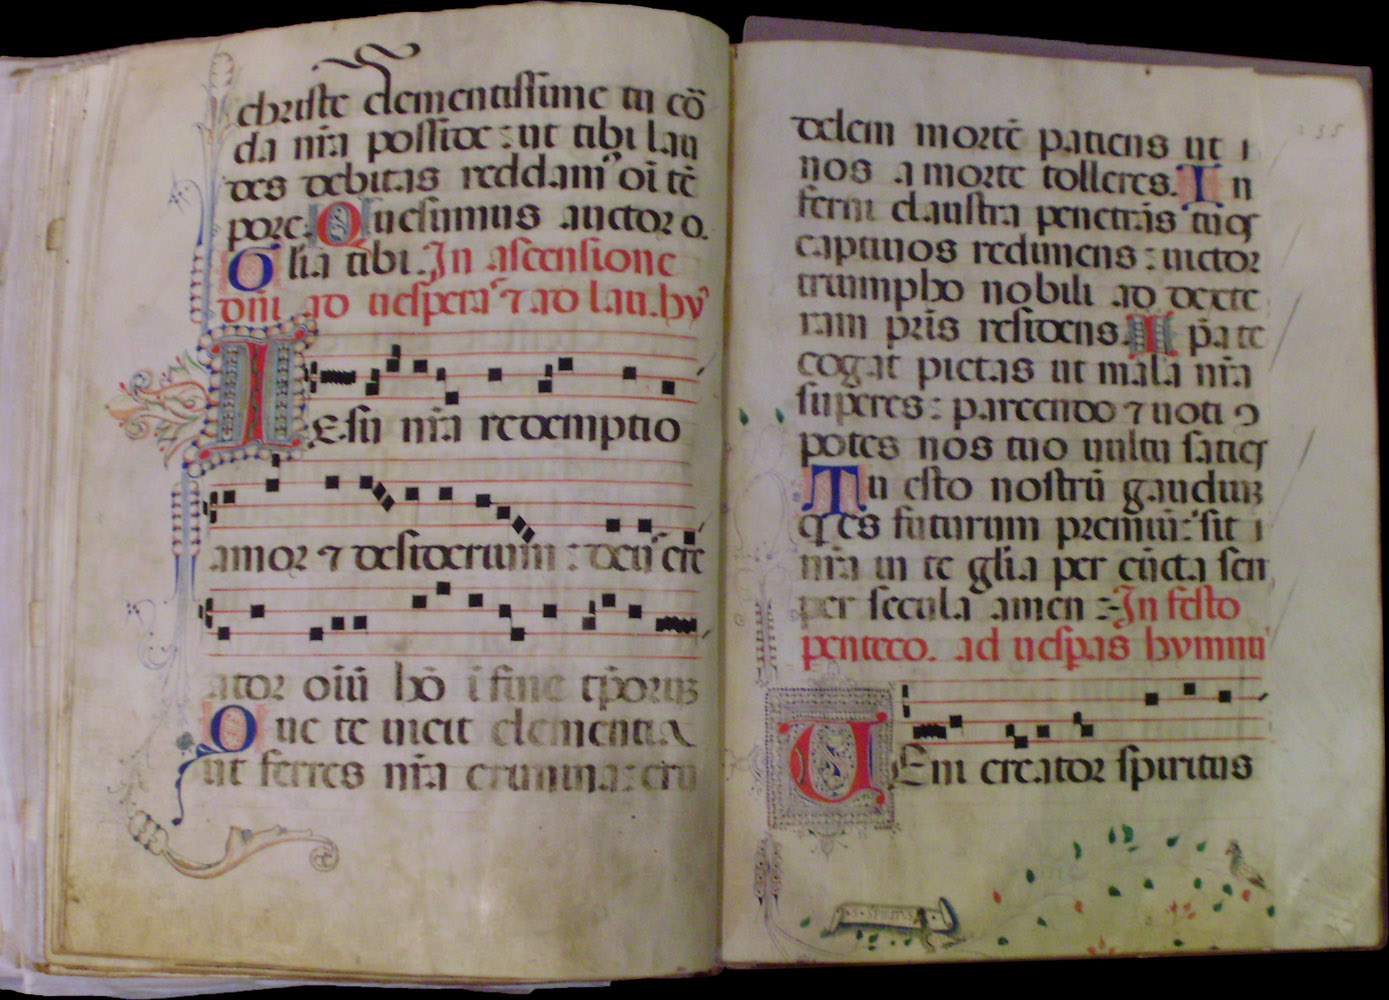 christe clementissime tu cō
da nr̄a posside : ut tibi lau
des debitas reddam' oī tē
pore. Quesumus auctor o.
Glīa tibi. In ascensione
dnī ad uespera' ⁊ ad lau. hy'
IEsu nr̄a redemptio
amor ⁊ desiderium : deu' cre
ator oīū hō ī fine tp̄oruꝫ
Que te uicit clementia
ut ferres nr̄a crimina : cru
delem mortē patiens ut
nos a morte tolleres. In
ferni claustra penetrās tuos
captiuos redimens : uictor
triumpho nobili ad dexte
ram pr̄is residens. Ip̄a te
cogat pietas ut mala nr̄a
superes : parcendo ⁊ uoti ꝯ
potes nos tuo uultu saties
Tu esto nostrū gaudiuꝫ
q es futurum premiū : sit
nr̄a in te glīa per cūcta sem
per secula amen :- In festo
penteco. ad uesp̄as hymnu'
UEni creator spiritus
S · SPIRITVS
235